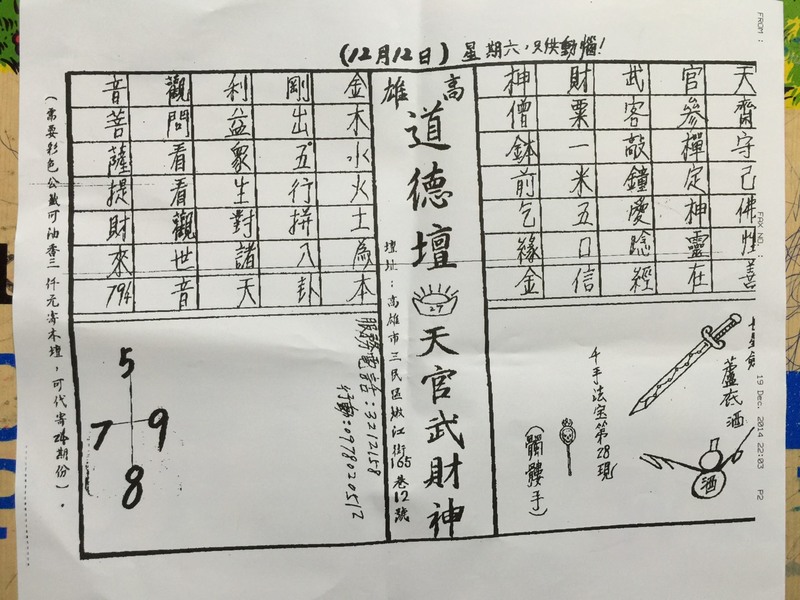 (12月12日) 星期六,只供動惱!
天齋守己佛性善
官參禪定神靈在
武客敲鐘愛唸經
財粟一米五口信
神僧鉢前乞緣金
高雄
道德壇
27
天官武財神
壇址:高雄市三民區嫩江街165巷12號
金木水火土為本
剛出五行拼八卦
利益眾生對諸天
觀問看看觀世音
音菩薩提財來794
服務電話:3212158
行動:0978020512
5
7 9
8
七星劍
蘆衣酒
酒
千手法宝第28現
(髑髏手)
(需要彩色公載可油香三仟元寄本壇,可代寄24期份)。
FROM :
FAX NO. :
19 Dec. 2014 22:03 P2